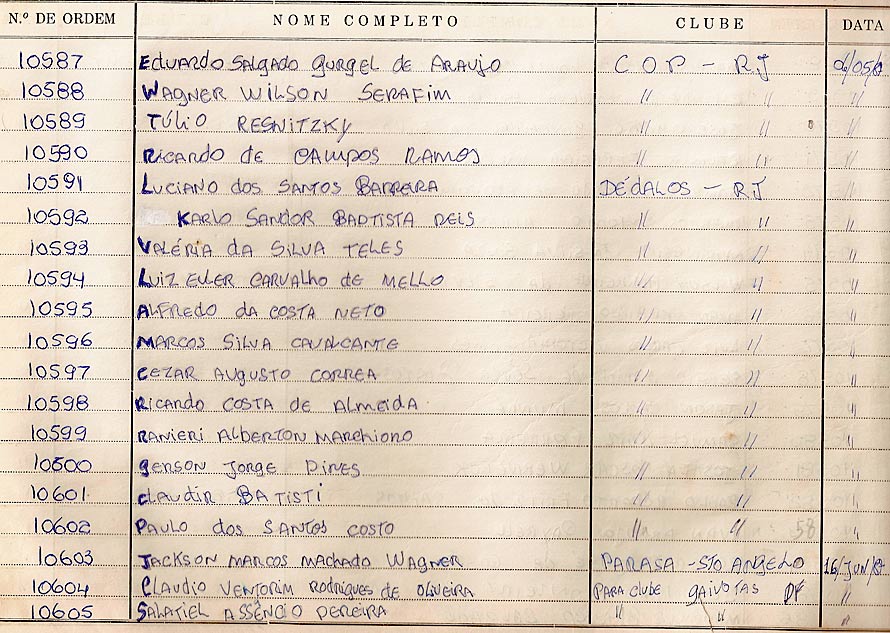 N.º DE ORDEM NOME COMPLETO CLUBE DATA
10587 EDUARDO SALGADO GURGEL DE ARAUJO COP - RJ
10588 WAGNER WILSON SERAFIM " " "
10589 TÚLIO RESNITZKY " " "
10590 RICARDO DE CAMPOS RAMOS " " "
10591 LUCIANO DOS SANTOS BARREIRA DÉDALOS - RJ "
10592 KARLO SANDOR BAPTISTA REIS " " "
10593 VALÉRIA DA SILVA TELES " " "
10594 LUIZ EULER CARVALHO DE MELLO " " "
10595 ALFREDO DA COSTA NETO " " "
10596 MARCOS SILVA CAVALCANTE " " "
10597 CEZAR AUGUSTO CORREA " " "
10598 RICARDO COSTA DE ALMEIDA " " "
10599 RANIERI ALBERTON MARCHIORO " " "
10500 GERSON JORGE PIRES " " "
10601 CLAUDIR BATISTI " " "
10602 PAULO DOS SANTOS COSTO " " "
10603 JACKSON MARCOS MACHADO WAGNER PARASA - STO ANGELO
10604 CLAUDIO VENTORIM RODRIGUES DE OLIVEIRA PARA CLUBE GAIVOTAS "
10605 SALATIEL ASSÊNCIO PEREIRA " " "